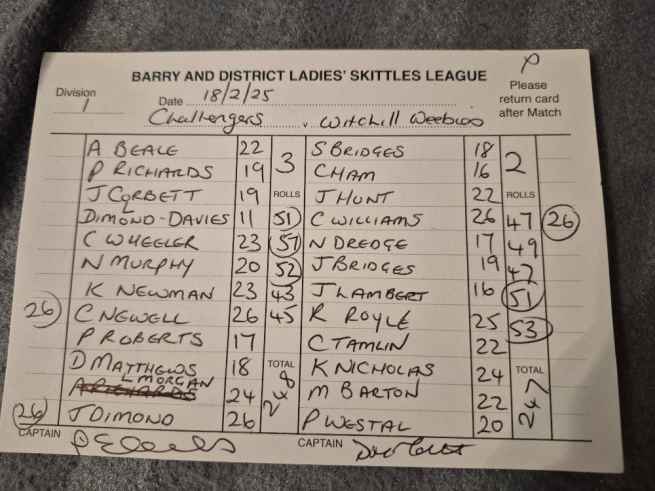 P
BARRY AND DISTRICT LADIES' SKITTLES LEAGUE
Division
1
Date 18/2/25
Please
return card
after Match
Challengers v Witchill Weebles
A BEALE 22 3 S BRIDGES 18 2
P RICHARDS 19 C HAM 16
J CORBETT 19 ROLLS J HUNT 22 ROLLS
L DIMOND-DAVIES 11 51 C WILLIAMS 26 47 26
C WHEELER 23 57 N DREDGE 17 49
N MURPHY 20 52 J BRIDGES 19 47
K NEWMAN 23 43 J LAMBERT 16 51
26 C NEWELL 26 45 R ROYLE 25 53
P ROBERTS 17 C TAMLIN 22
D MATTHEWS 18 TOTAL K NICHOLAS 24 TOTAL
L MORGAN 24 248 M BARTON 22 247
26 J DIMOND 26 P WESTAL 20
CAPTAIN CAPTAIN